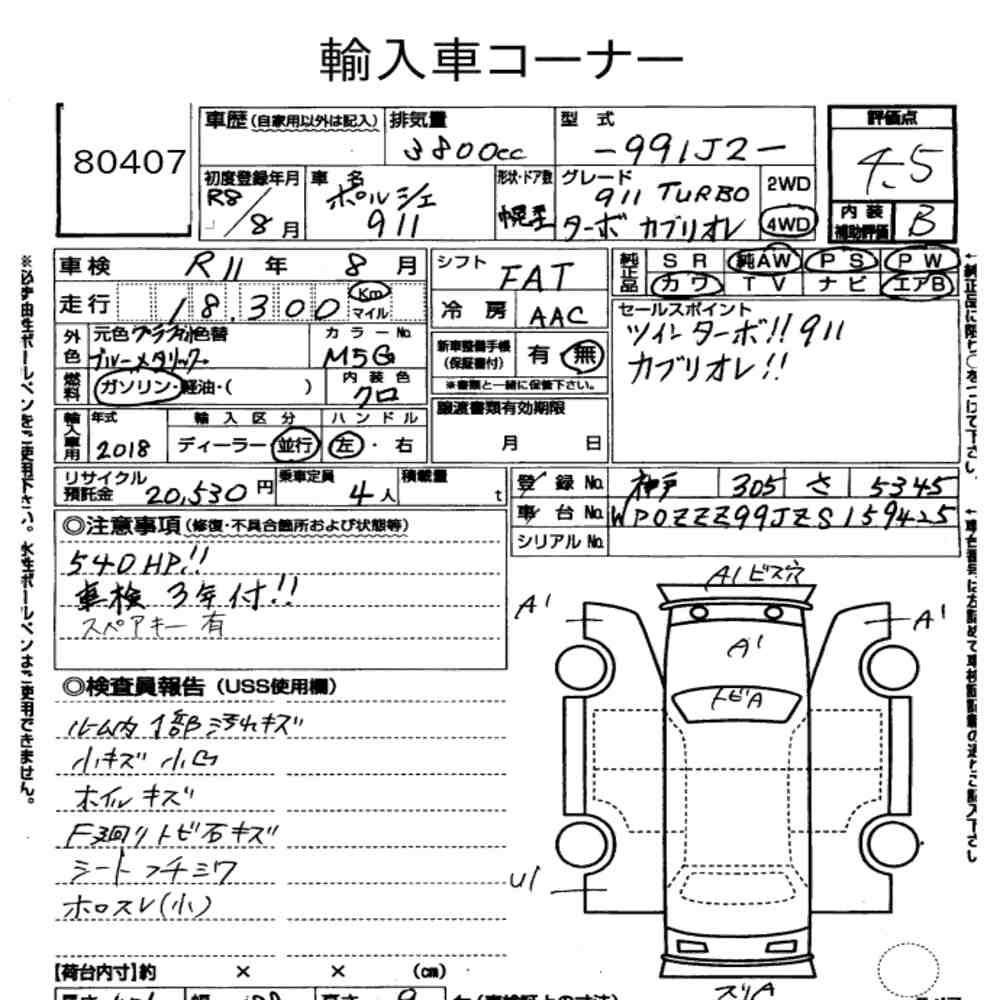 輸入車コーナー
80407
車歴(自家用以外は記入)
排気量
3800cc
型式
-991J2-
評価点
4.5
初度登録年月
R8/8月
車名
ポルシェ
911
形状・ドア数
幌
グレード
911 TURBO
ターボ カブリオレ
2WD
4WD
内装
補助評価
B
車検 R11年 8月
走行 18.300 Km
マイル
シフト FAT
冷房 AAC
純正品
SR 純AW PS PW
カワ TV ナビ エアB
外色
元色 色替
ブルーメタリック
カラーNo.
M5G
新車整備手帳
(保証書付)
有 無
※書類と一緒に保管下さい。
セールスポイント
ツインターボ!! 911
カブリオレ!!
燃料
ガソリン・軽油・( )
内装色
クロ
譲渡書類有効期限
月 日
輸入車用
年式
2018
輸入区分
ディーラー・並行
ハンドル
左・右
リサイクル
預託金
20,530円
乗車定員
4人
積載量
t
登録No. 神戸 305 さ 5345
車台No. WP0ZZZ99JZS159425
シリアルNo.
◎注意事項(修復・不具合箇所および状態等)
540HP!!
車検 3年付!!
スペアキー有
◎検査員報告(USS使用欄)
ルーム内 1部 汚れキズ
小キズ 小凹
ホイルキズ
F廻りトビ石キズ
シートフチシワ
ホロスレ(小)
A1ビス穴
A1
A1
A1
トビA
U1
スリA
【荷台内寸】約 × × (cm)
※必ず油性ボールペンをご使用下さい。水性ボールペンはご使用できません。
↑純正品に限り○をつけて下さい。